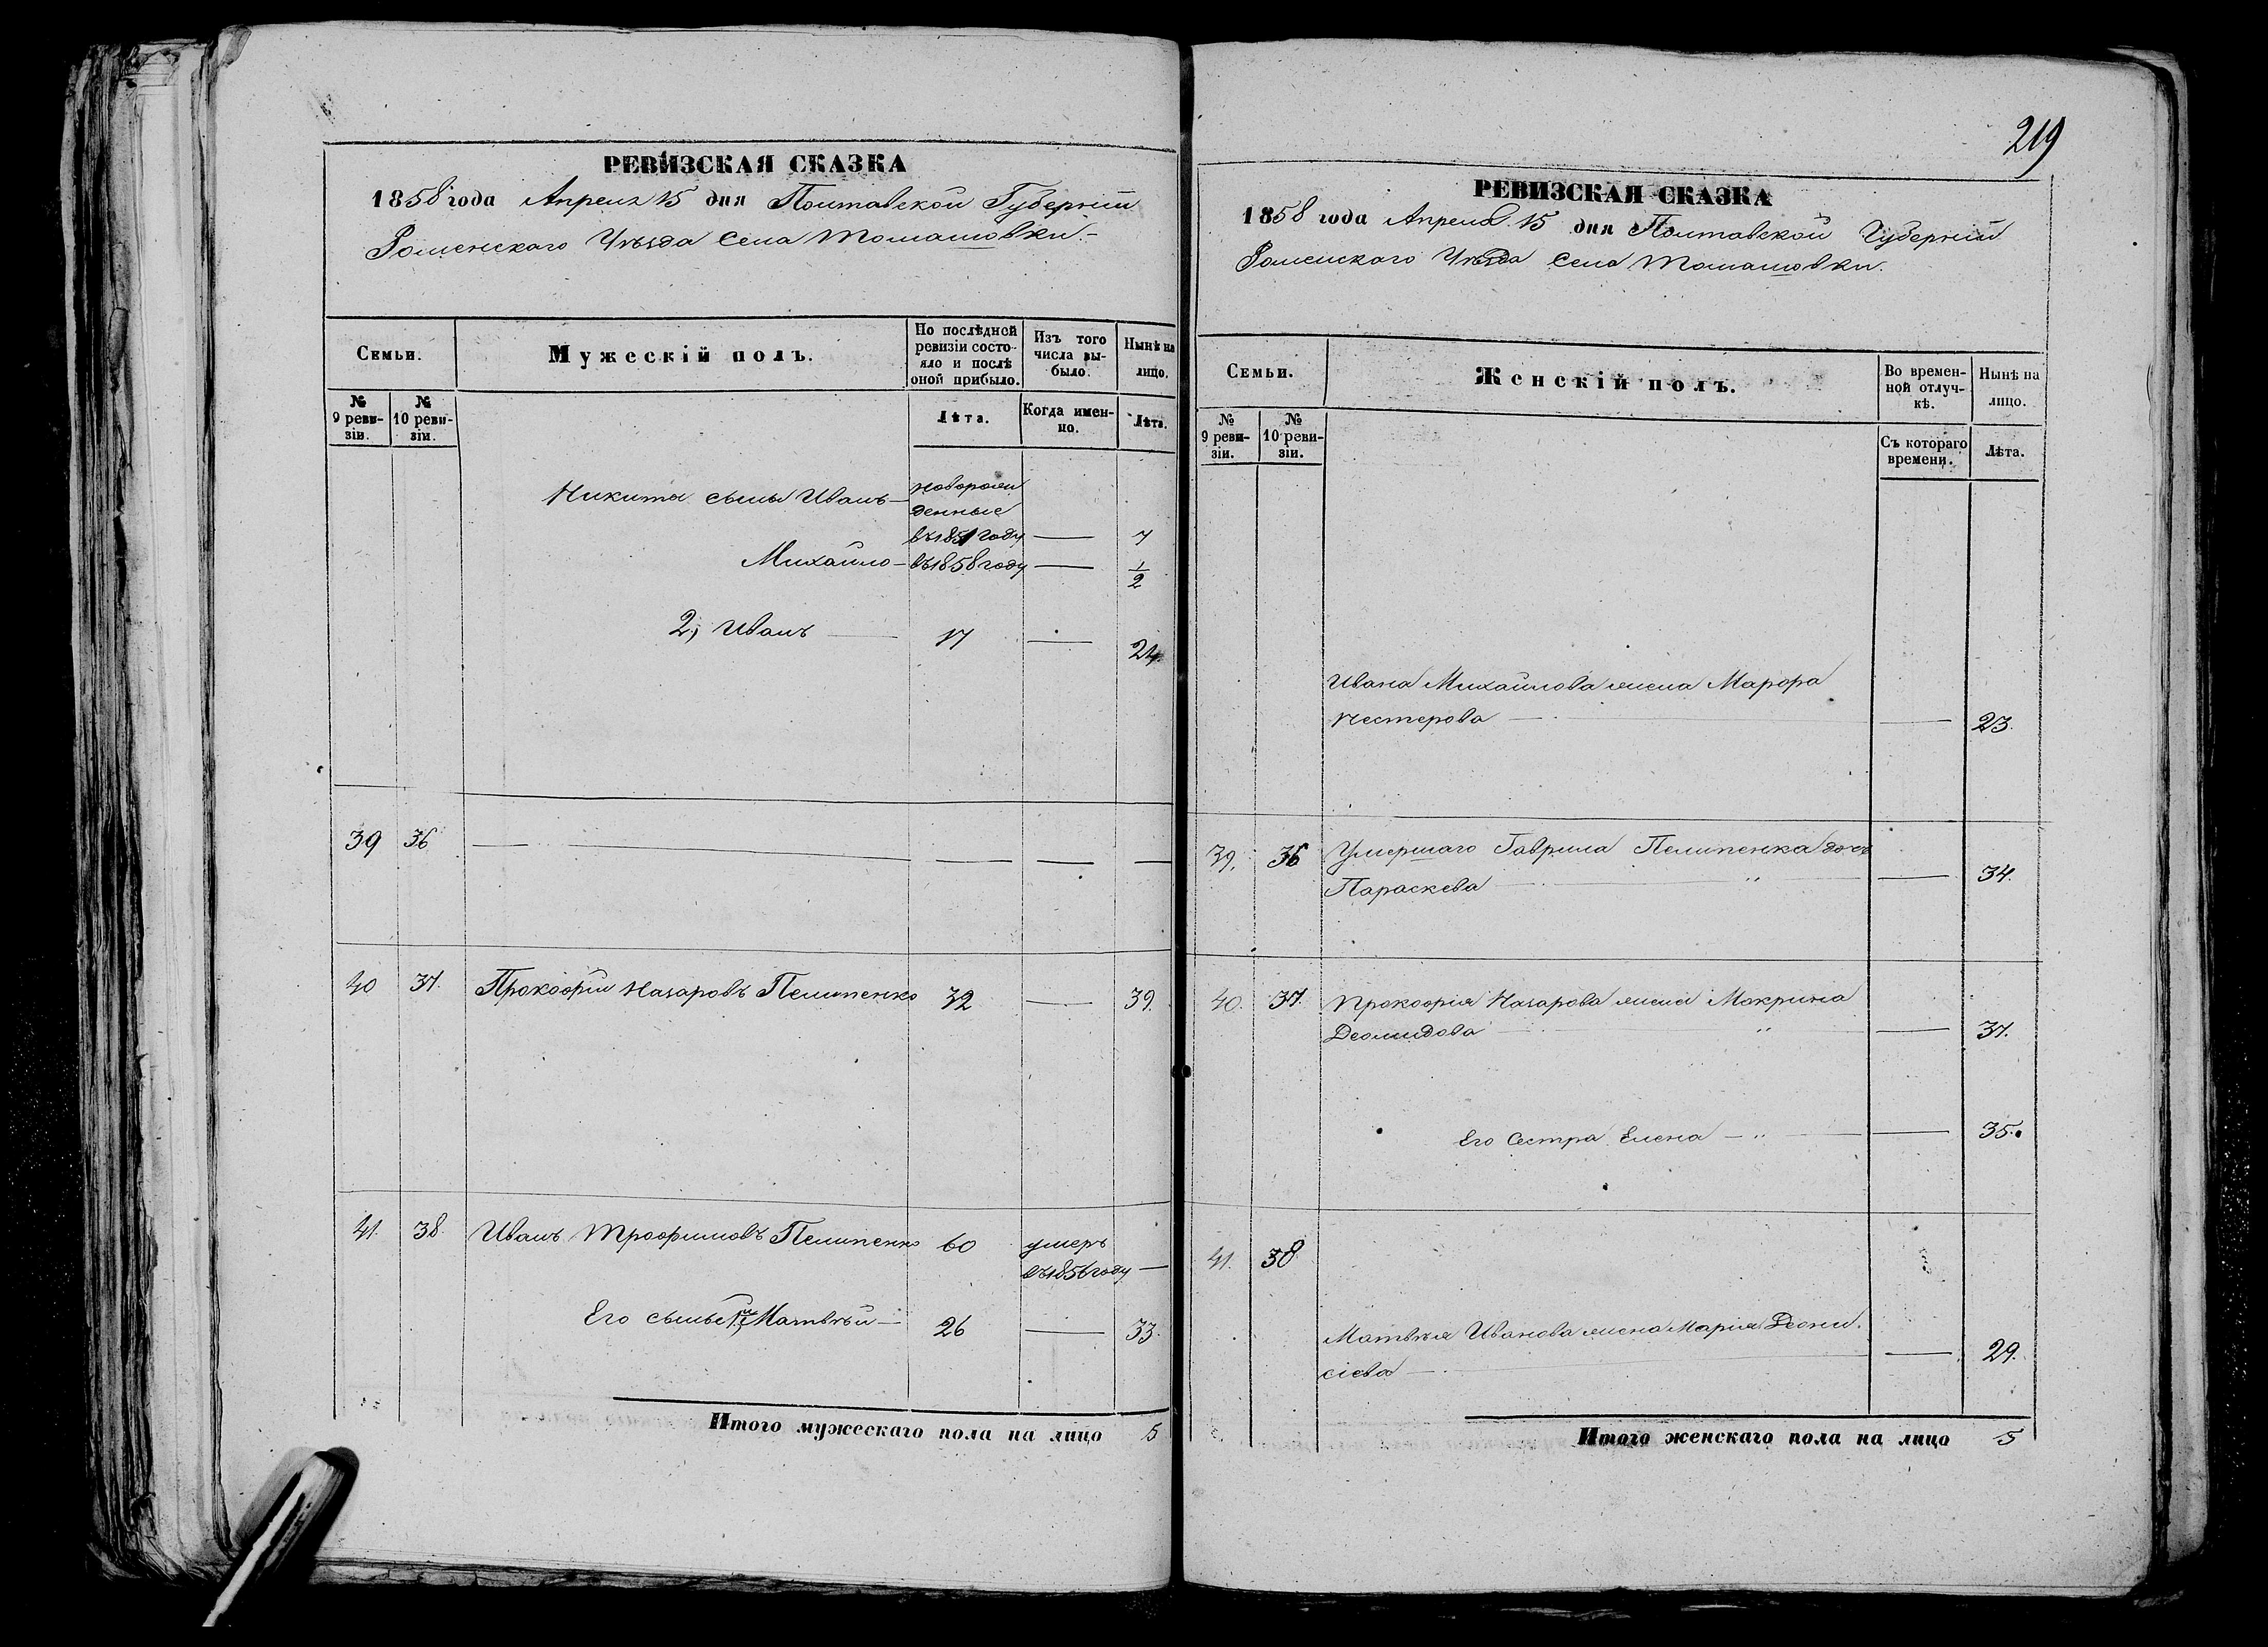 РЕВИЗСКАЯ СКАЗКА
1858 года Апреля 15 дня Полтавской Губерніи
Роменскаго Уѣзда Села Томашовки.
Семьи.
Мужескій полъ.
По послѣдней ревизіи состояло и послѣ оной прибыло.
Изъ того числа выбыло.
Нынѣ на лицо.
№ 9 ревизіи.
№ 10 ревизіи.
Лѣта.
Когда именно.
Лѣта.
Никиты сыны Иванъ — новорожденные
въ 1851 году — 7
Михайло — въ 1858 году — 1/2
2, Иванъ — 17 — 24.
39 36 — — — —
40 37. Прокофій Назаровъ Пелипенко 32 — 39.
41. 38. Иванъ Трофимовъ Пелипенко 60 умеръ
въ 1856 году —
Его сынъ 1й Матвѣй — 26 — 33.
Итого мужескаго пола на лицо 5
219
РЕВИЗСКАЯ СКАЗКА
1858 года Апреля 15 дня Полтавской Губерніи
Роменскаго Уѣзда Села Томашовки.
Семьи.
Женскій полъ.
Во временной отлучкѣ.
Нынѣ на лицо.
№ 9 ревизіи.
№ 10 ревизіи.
Съ котораго времени.
Лѣта.
Ивана Михайлова жена
Нестерова — — 23.
39. 36 Умершаго Гаврила Пелипенка дочь
Параскева — " — 34.
40. 37. Прокофія Назарова жена Макрина
Деомидова — " — 37.
Его Сестра Елена — " — 35.
41. 38
Матвѣя Иванова жена Марія Діони-
сіева — — 29.
Итого женскаго пола на лицо 5